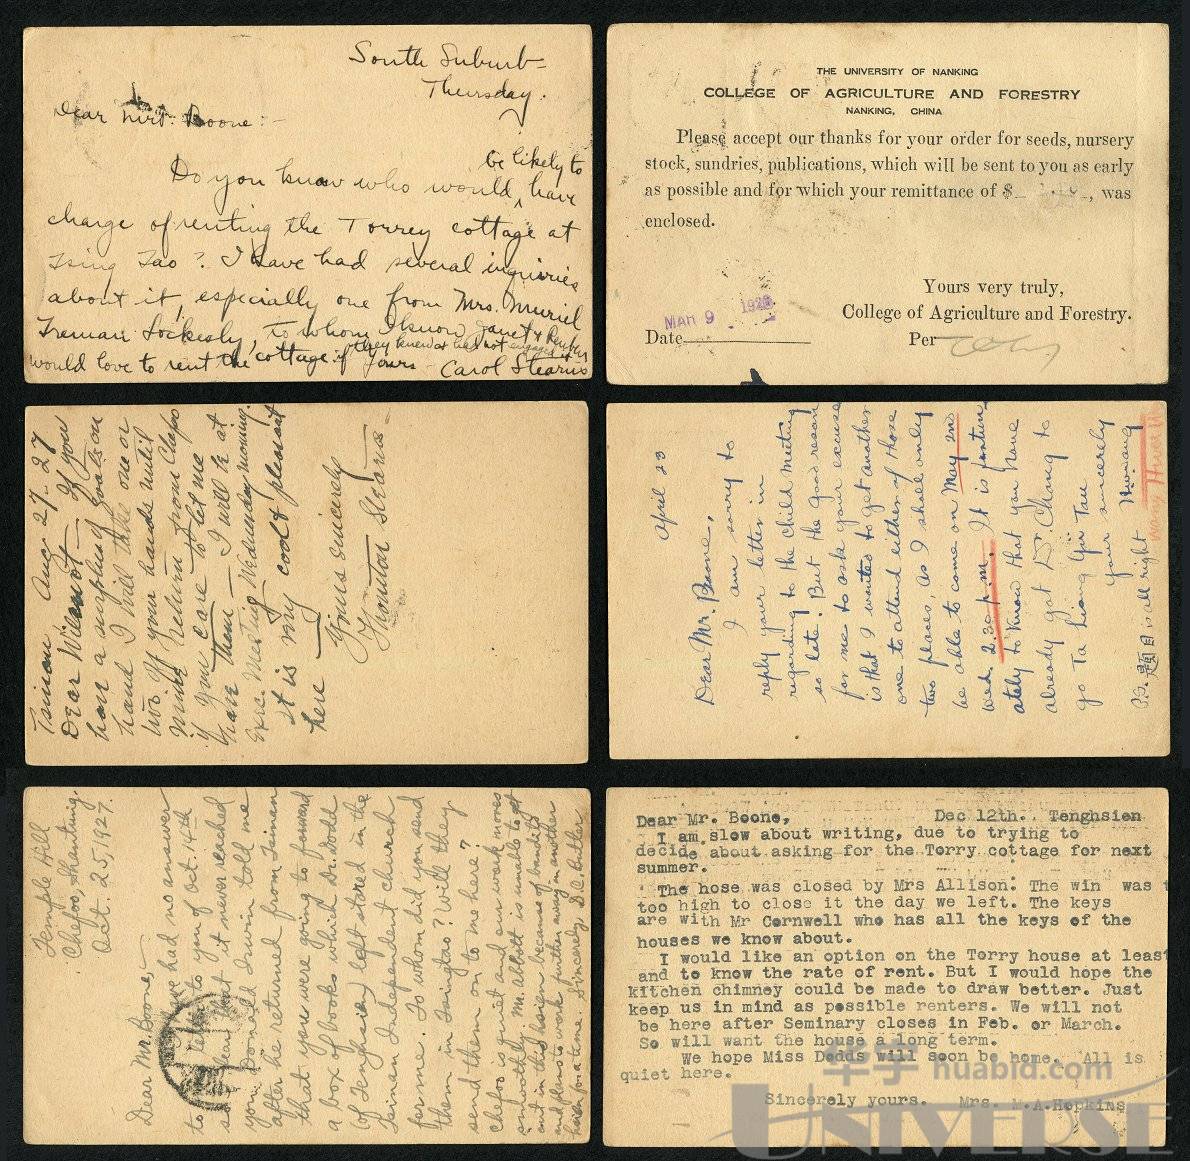 South Suburb
Thursday.
Dear Mr. Boone:-
be likely to
Do you know who would have
charge of renting the Torrey cottage at
Tsing Tao? I have had several inquiries
about it, especially one from Mrs. Muriel
Tremain Lockesly, to whom I know Janet & Reuben
would love to rent the cottage if they knew it has not
Yours - Carol Stearns
THE UNIVERSITY OF NANKING
COLLEGE OF AGRICULTURE AND FORESTRY
NANKING, CHINA
Please accept our thanks for your order for seeds, nursery
stock, sundries, publications, which will be sent to you as early
as possible and for which your remittance of $ , was
enclosed.
Yours very truly,
College of Agriculture and Forestry.
MAR 9 1926
Date
Per
Tsinan Aug 27. 27
Dear Wilmot - If you
have a surplus of goats on
hand I will take one or
two. If your hands until
return from Chefoo
If you care to let me
have them - I will be at
Exec. Meeting Wednesday morning.
It is my cool & pleasant
here
Yours sincerely
Thornton Stearns
April 23
Dear Mr. Boone,
I am sorry to
reply your letter in
regarding to the Child Meeting
so late! But the good reason
for me to ask your excuse
is that I wanted to get another
one to attend either of those
two places, as I shall only
be able to come on May 2nd
wed. 2.30 p.m. It is fortun
ately to know that you have
already got Dr. Chang to
go Ta Liang Yü Tau
your sincerely
Hwang
P.S. 題目 is all right
Temple Hill
Chefoo, Shantung.
Oct. 25, 1927.
Dear Mr. Boone,
I have had no answer
to letter to you of Oct. 14th
so fear that it never reached
you. Donald Irwin told me
after he returned from Tsinan
that you were going to forward
a box of books which Dr. Dodd
(of Tenghsien) left stored in the
Tsinan Independent Church
for me. To whom did you send
them in Tsingtao? Will they
send them on to me here?
Chefoo is quiet and our work moves
smoothly. Mr. Abbott is unable to get
out in this hsien because of bandits
and plans to work further away in another
hsien for a time. Sincerely, D.C. Butler
Dear Mr. Boone, Dec 12th. Tenghsien
I am slow about writing, due to trying to
decide about asking for the Torry cottage for next
summer.
The hose was closed by Mrs Allison. The win was t
too high to close it the day we left. The keys
are with Mr Cornwell who has all the keys of the
houses we know about.
I would like an option on the Torry house at least
and to know the rate of rent. But I would hope the
kitchen chimney could be made to draw better. Just
keep us in mind as possible renters. We will not
be here after Seminary closes in Feb. or March.
So will want the house a long term.
We hope Miss Dodds will soon be home. All is
quiet here.
Sincerely yours. Mrs. M.A.Hopkins
华宇 huabid.com
UNIVERSE